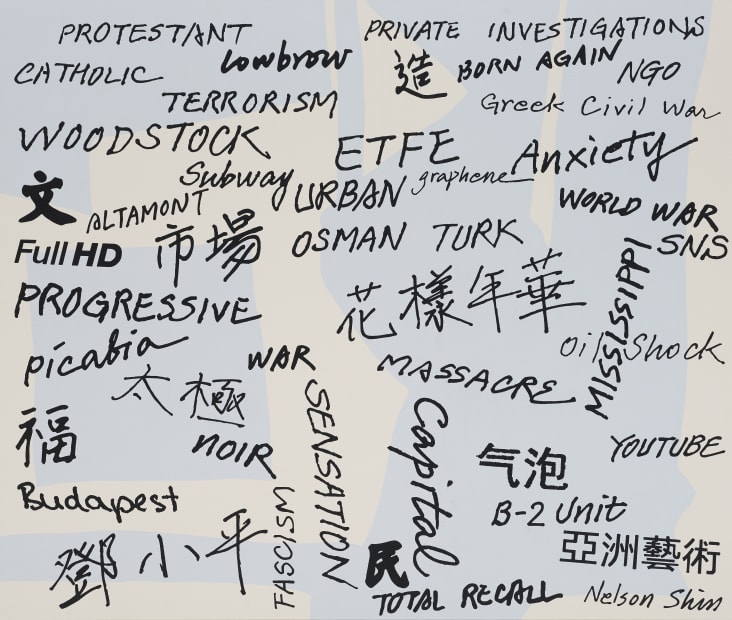 PROTESTANT
PRIVATE INVESTIGATIONS
Lowbrow
CATHOLIC
造
BORN AGAIN
NGO
TERRORISM
Greek Civil War
WOODSTOCK
ETFE
Anxiety
Subway
graphene
文
ALTAMONT
URBAN
WORLD WAR
Full HD
市場
OSMAN TURK
SNS
PROGRESSIVE
花樣年華
MISSISSIPPI
picabia
WAR
Oil Shock
太極
MASSACRE
福
NOIR
SENSATION
Capital
气泡
YOUTUBE
Budapest
B-2 Unit
鄧小平
FASCISM
民
亞洲藝術
TOTAL RECALL
Nelson Shin